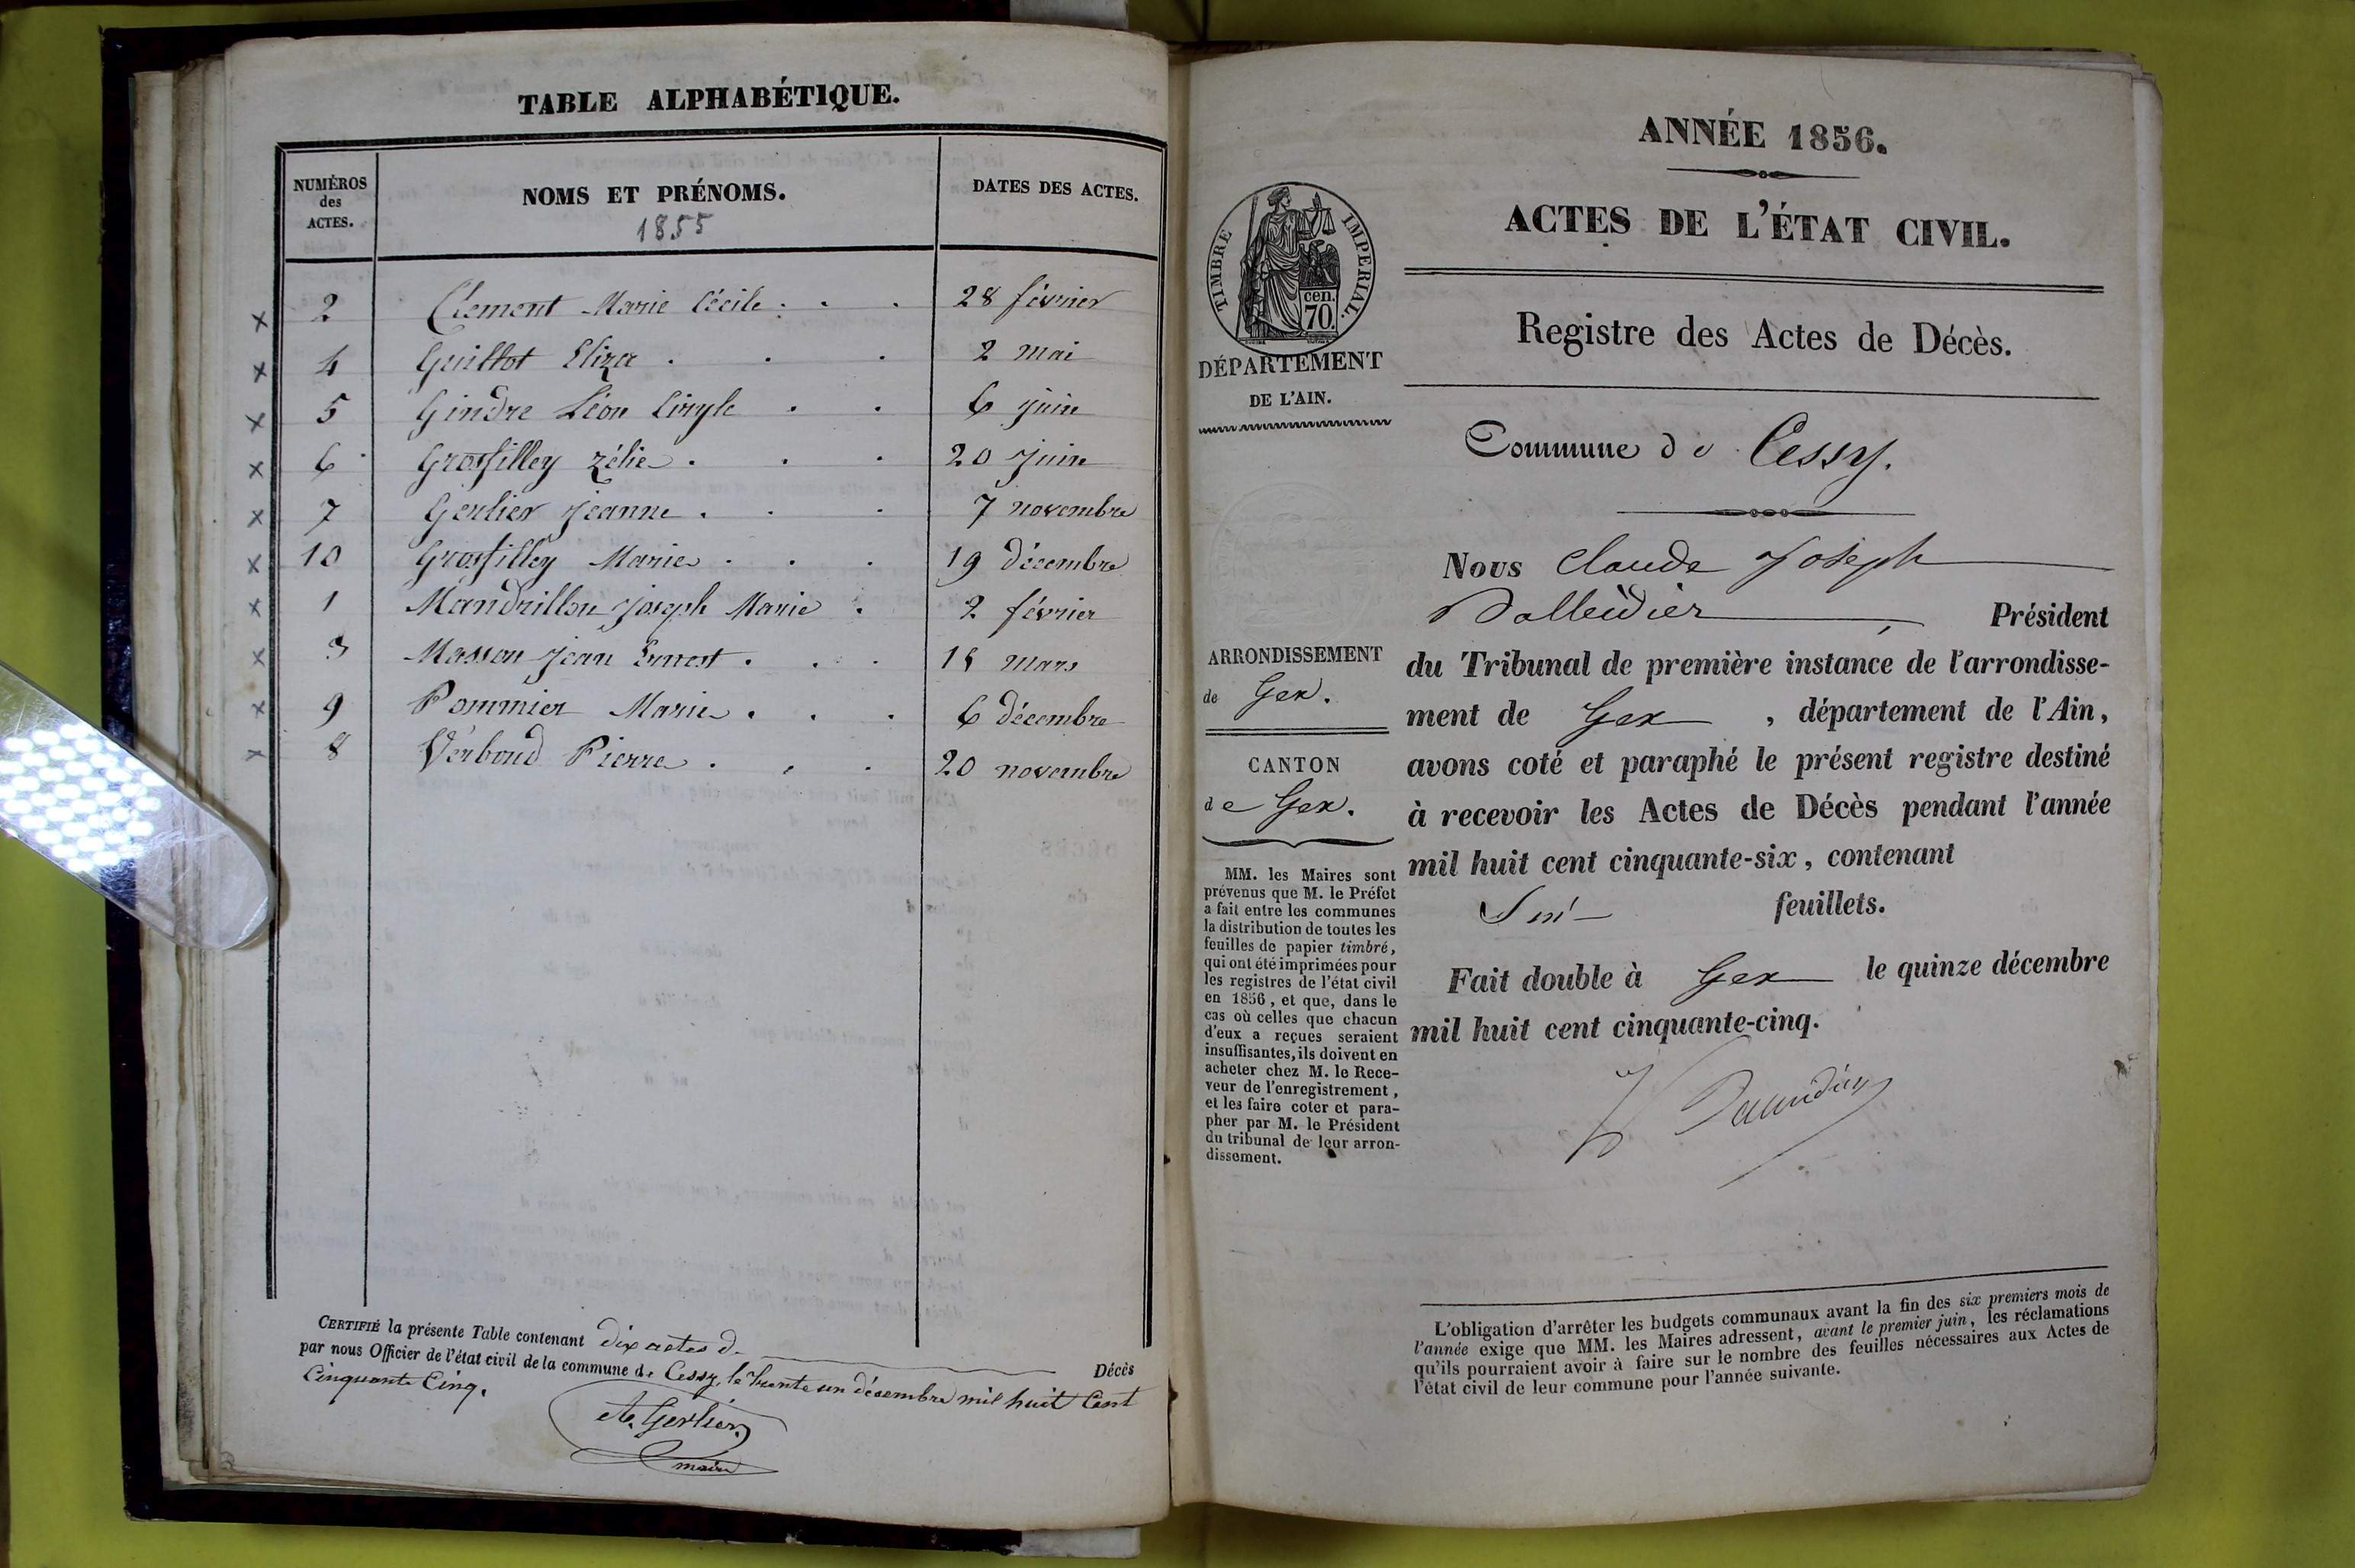 TABLE ALPHABÉTIQUE.
NUMÉROS des ACTES.
NOMS ET PRÉNOMS.
1855
DATES DES ACTES.
2 Clement Marie Cécile 28 février
4 Guillot Eliza 2 mai
5 Gindre Léon 6 juin
6 Grosfilley zélie 20 juin
7 Gerlier Jeanne 7 novembre
10 Grosfilley Marie 19 décembre
1 Mandrillon Joseph Marie 2 février
3 Masson Jean Ernest mars
9 Pommier Marie 6 décembre
8 Pierre 20 novembre
CERTIFIÉ la présente Table contenant dix actes d. Décès
par nous Officier de l'état civil de la commune de Cessy, le trente un décembre mil huit Cent
Cinquante Cinq.
Gerlier
maire
ANNÉE 1856.
ACTES DE L'ÉTAT CIVIL.
Registre des Actes de Décès.
Commune de Cessy.
TIMBRE IMPERIAL.
cen.
70
DÉPARTEMENT
DE L'AIN.
ARRONDISSEMENT
de Gex.
CANTON
de Gex.
MM. les Maires sont
prévenus que M. le Préfet
a fait entre les communes
la distribution de toutes les
feuilles de papier timbré,
qui ont été imprimées pour
les registres de l'état civil
en 1856, et que, dans le
cas où celles que chacun
d'eux a reçues seraient
insuffisantes, ils doivent en
acheter chez M. le Rece-
veur de l'enregistrement,
et les faire coter et para-
pher par M. le Président
du tribunal de leur arron-
dissement.
Nous Claude Joseph
Président
du Tribunal de première instance de l'arrondisse-
ment de Gex, département de l'Ain,
avons coté et paraphé le présent registre destiné
à recevoir les Actes de Décès pendant l'année
mil huit cent cinquante-six, contenant
feuillets.
Fait double à Gex le quinze décembre
mil huit cent cinquante-cinq.
L'obligation d'arrêter les budgets communaux avant la fin des six premiers mois de
l'année exige que MM. les Maires adressent, avant le premier juin, les réclamations
qu'ils pourraient avoir à faire sur le nombre des feuilles nécessaires aux Actes de
l'état civil de leur commune pour l'année suivante.